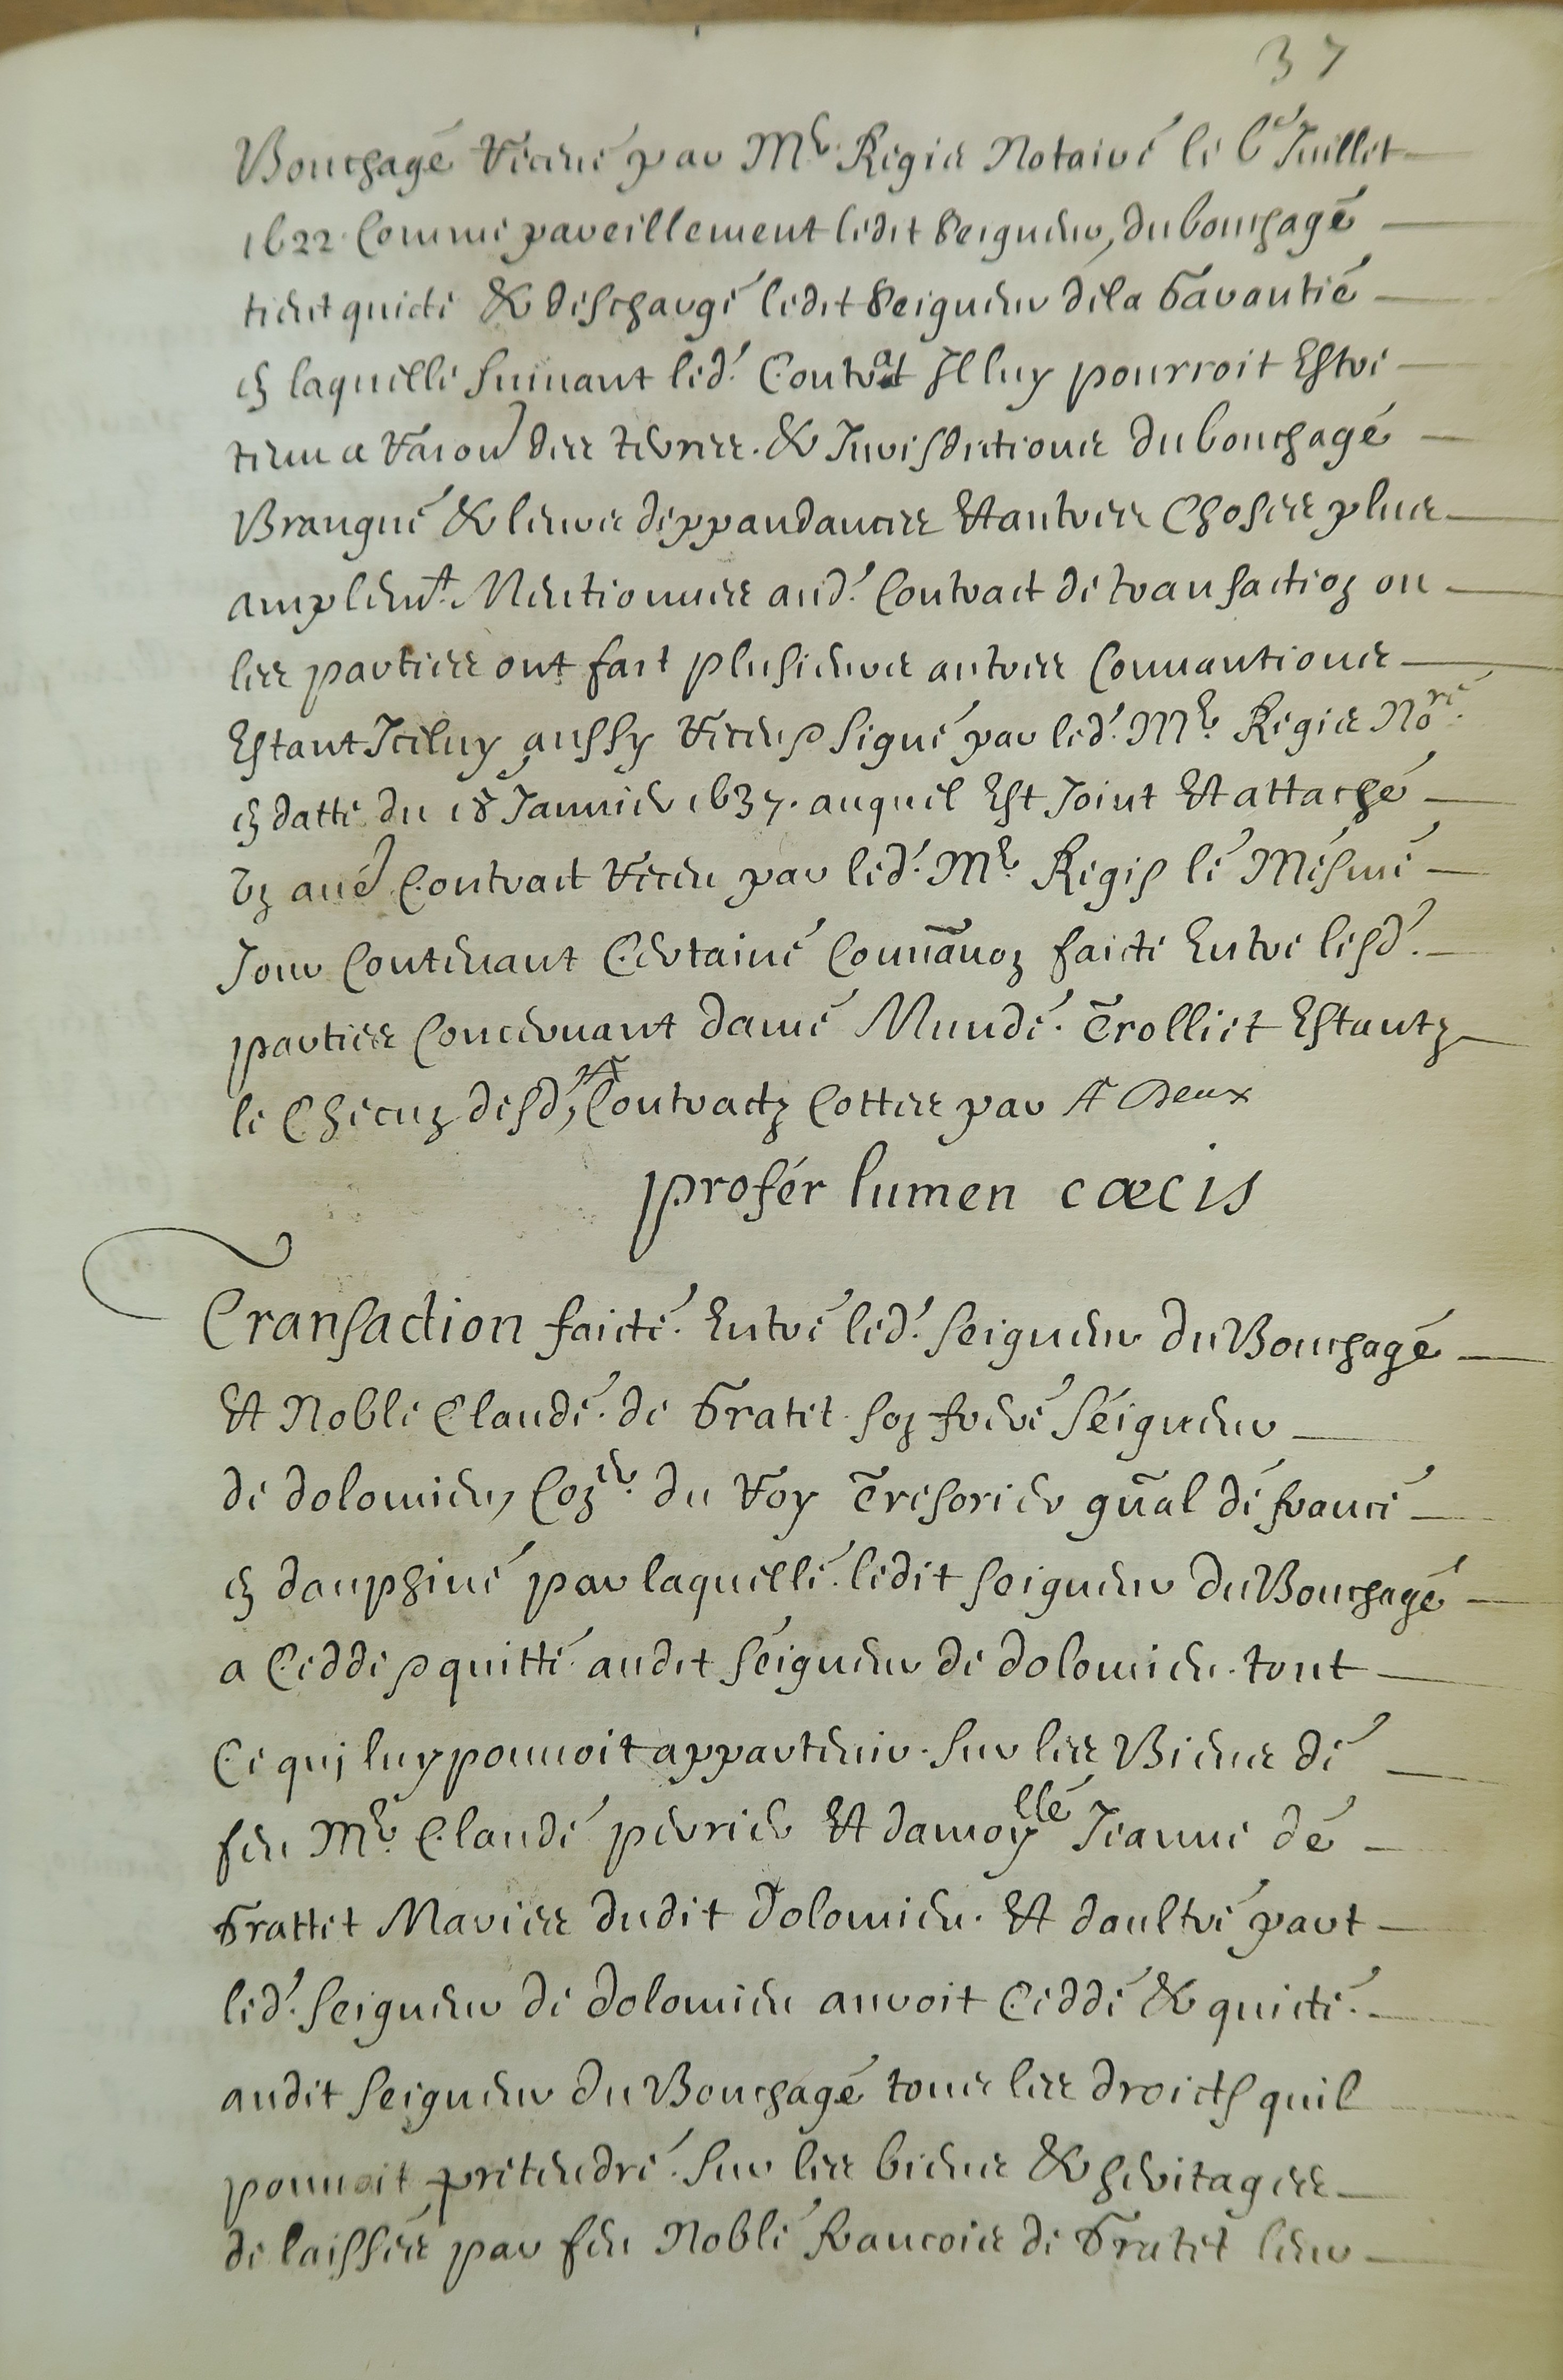 37
Bouchage receue par Mr. Regis Notaire le 6e Juillet
1622. Comme pareillement ledit Seigneur, du bouchage
tient quicte & descharge ledit Seigneur de la Garantie
en laquelle suiuant led. Contrat Il luy pourroit Estre
tenu a raison des terres. & Jurisdictions du bouchage
Brangue & leurs deppandances Et autres Choses plus
amplemt. Mentionnees aud. Contract de transaction ou
les parties ont fait plusieurs autres Conuantions
Estant Iceluy aussy receu & signe par led. Mr. Regis Nore.
en datte du 18 Januier 1637. auquel Est Joint Et attache
vn aue Contract receu par led. Mr. Regis le Mesme
Jour Contenant Certaine Conuanon faicte Entre lesd.
parties Concernant dame Meude. Trolliet Estantz
le Checun desd, Contractz Cottes par A Deux
profér lumen cæcis
Transaction faicte. Entre led. seigneur Du Bouchage
Et Noble Claude. de Gratet. son frere Seigneur
de dolomieu, Coner. du Roy Tresorier gnal de france
en dauphine par laquelle. ledit seigneur Du Bouchage
a Cedde & quitte. audit Seigneur de dolomieu. tout
Ce qui luy pouuoit appartenir. sur les Biens de
feu Mr. Claude perrier Et damoylle Jeanne de
Grattet Maries dudit Dolomieu. Et daultre part
led. seigneur de dolomieu auroit Cedde & quicte.
audit seigneur Du Bouchage tous les droicts quil
pouuoit pretendre. sur les biens & heritages
de laisses par feu Noble francois de Gratet leur